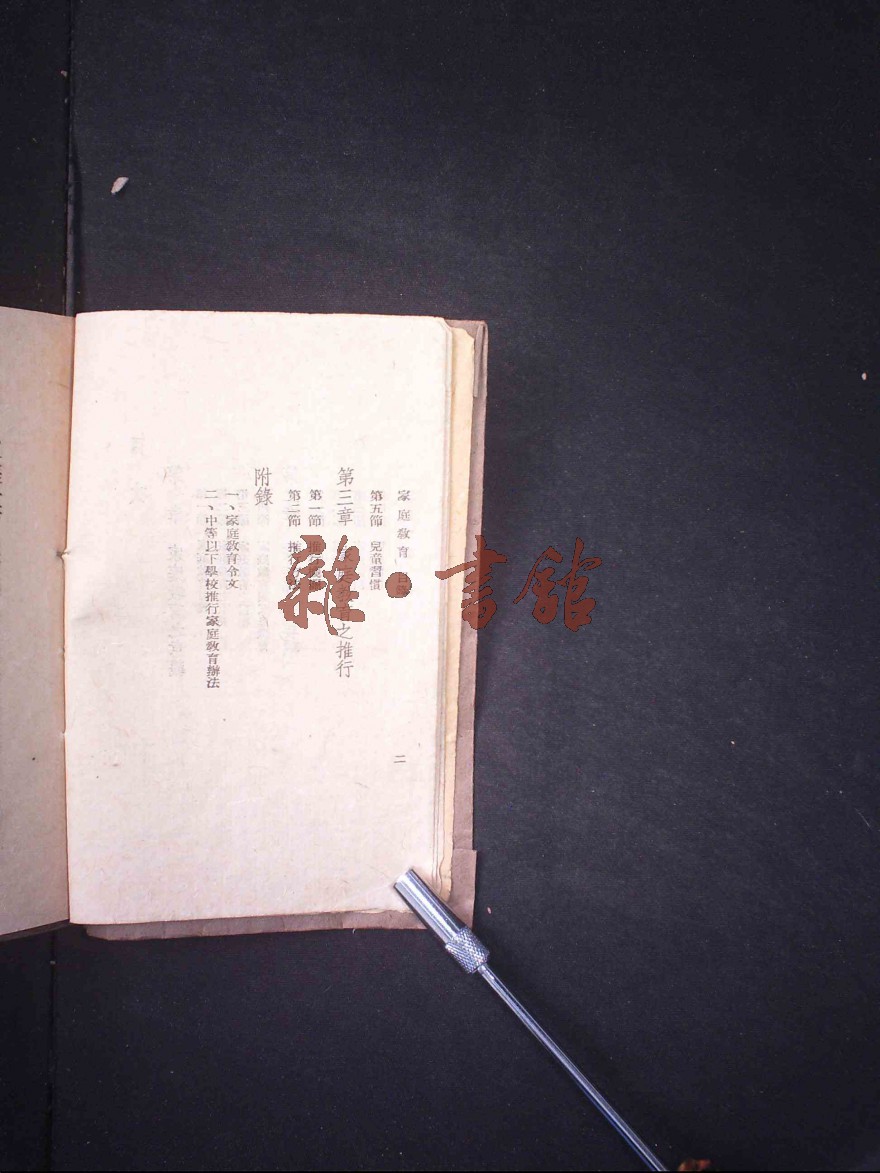 家庭教育 目錄
第五節 兒童習慣
第三章 之推行
第一節 推
第二節 推行
附錄
一、家庭教育令文
二、中等以下學校推行家庭教育辦法
二
雜·書館